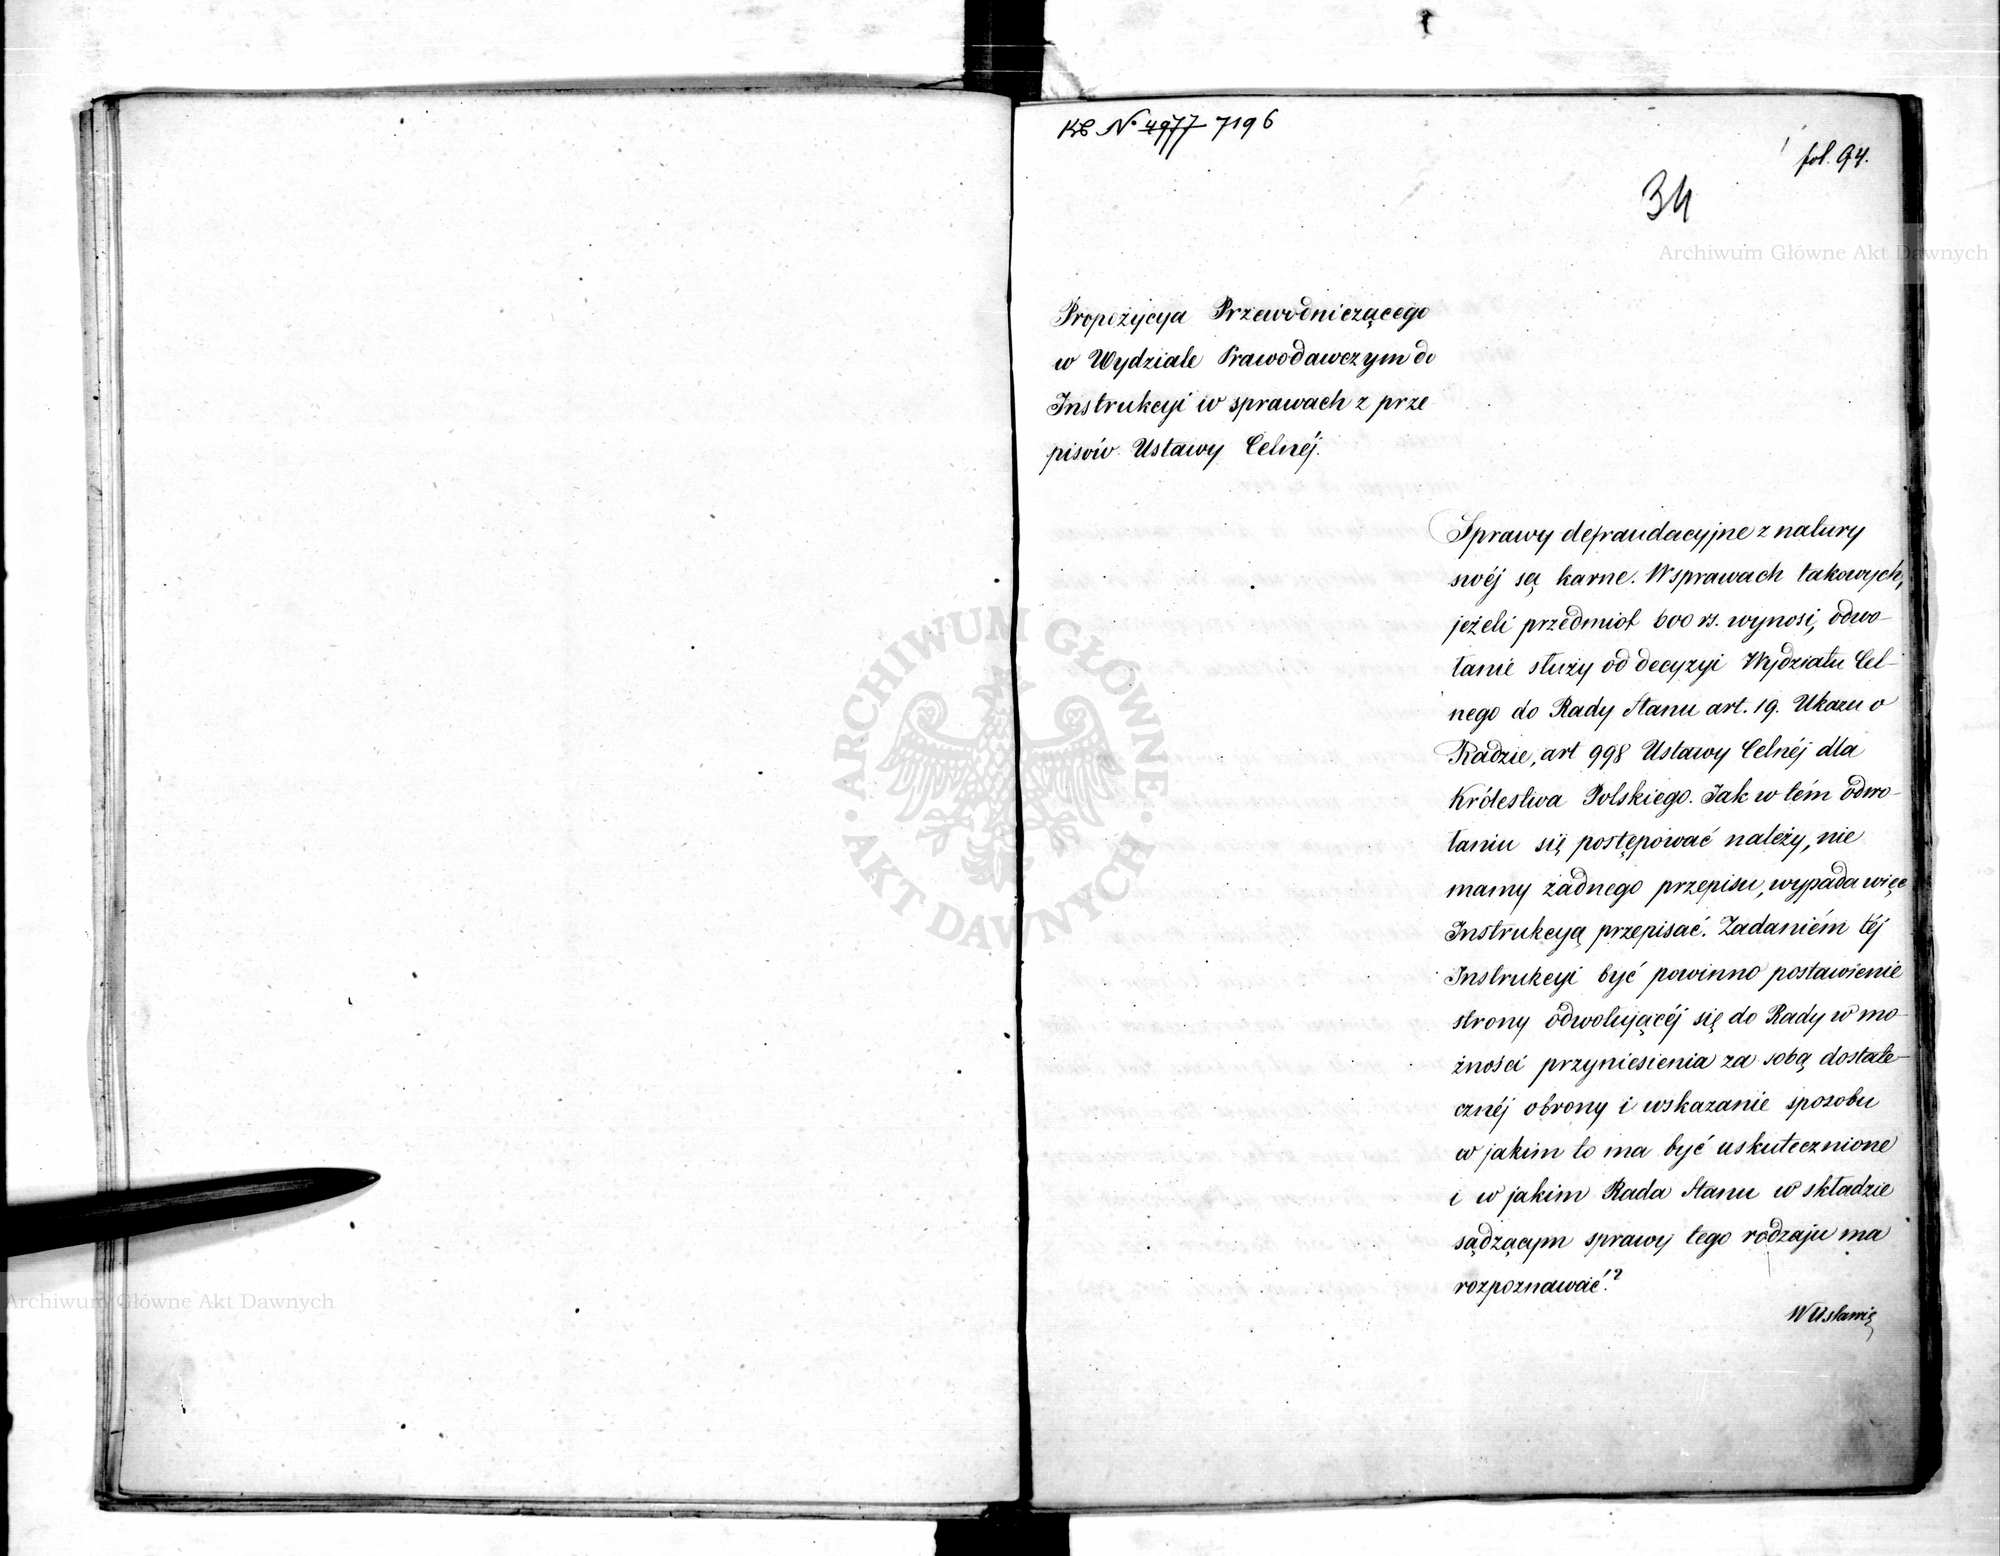 KC No 4977 7196
fol. 94.
34
Archiwum Główne Akt Dawnych
Propozycya Przewodniczącego
w Wydziale Prawodawczym do
Instrukcyi w sprawach z prze
pisów Ustawy Celnéj.
Sprawy defraudacyjne z natury
swéj są karne. W sprawach takowych,
jeżeli przedmiot 600 rs. wynosi, odwo-
łanie służy od decyzyi Wydziału Cel-
nego do Rady Stanu art. 19. Ukazu o
Radzie, art 998 Ustawy Celnéj dla
Królestwa Polskiego. Jak w tém odwo-
łaniu się postępować należy, nie
mamy żadnego przepisu, wypada więc
Instrukcyą przepisać. Zadaniém téj
Instrukcyi być powinno postawienie
strony odwołującéj się do Rady w mo-
żności przyniesienia za sobą dostate-
cznéj obrony i wskazanie sposobu
w jakim to ma być uskutecznione
i w jakim Rada Stanu w składzie
sądzącym sprawy tego rodzaju ma
rozpoznawać?
W Ustawie
ARCHIWUM GŁÓWNE
AKT DAWNYCH
Archiwum Główne Akt Dawnych